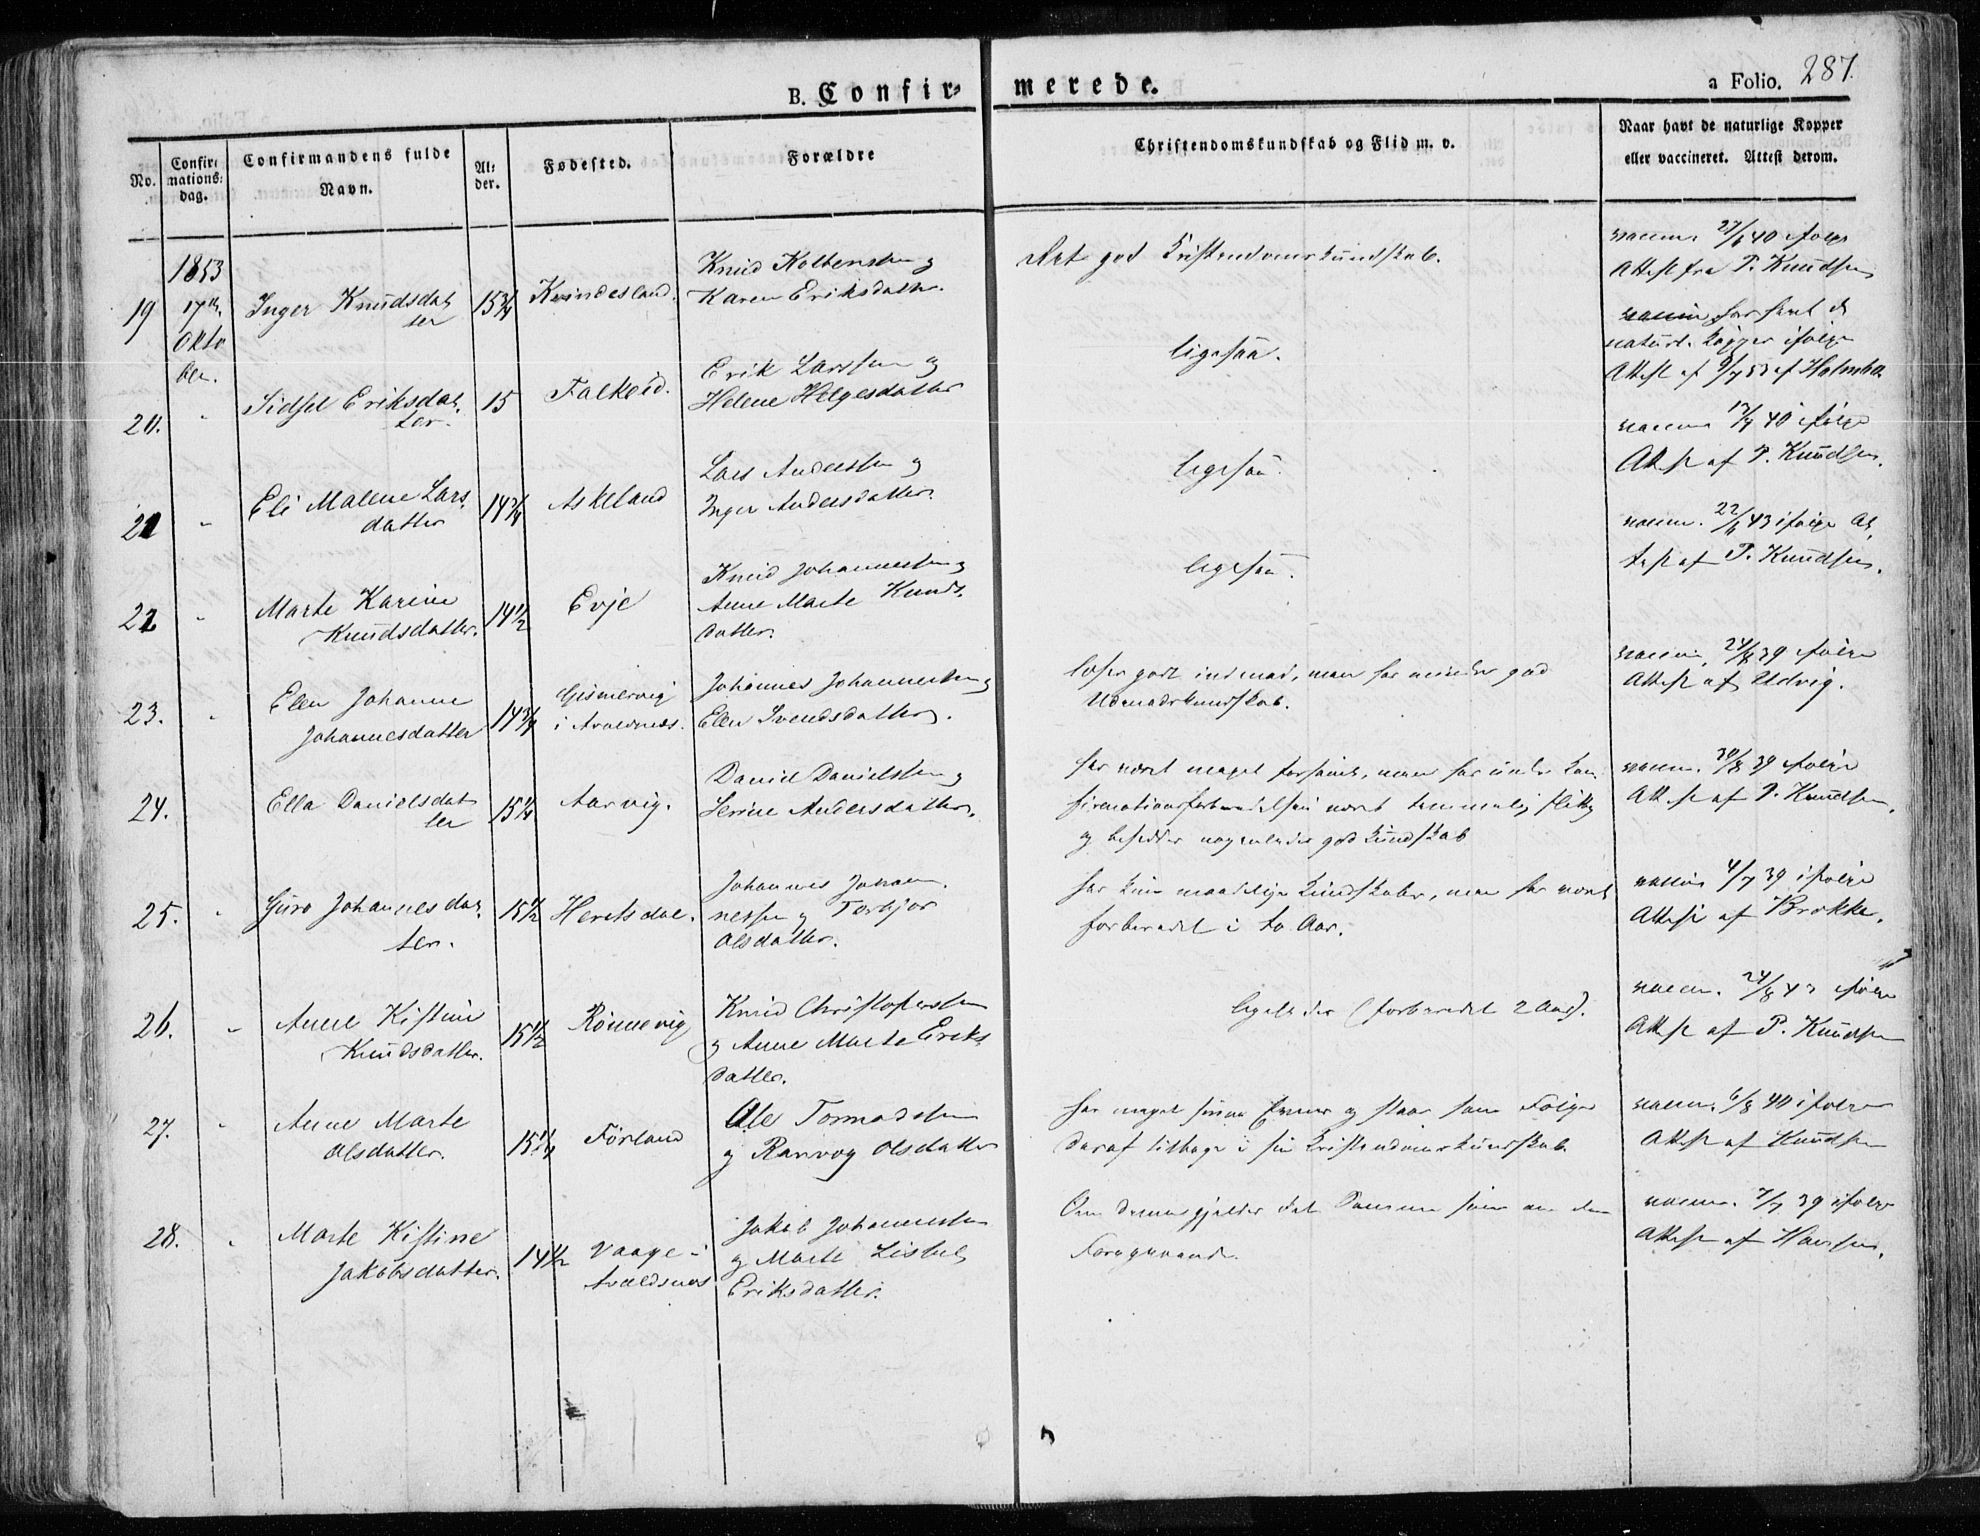 B. Confir-
merede.
a Folio. 287.
No.
Confir-
mations-
dag.
Confirmandens fulde
Navn.
Al-
der.
Fødested.
Forældre
Christendomskundskab og Flid m. v.
Naar havt de naturlige Kopper
eller vaccineret. Attest derom.
1853
17de
Okto
ber.
19
Inger Knudsdat
ter
15 3/4
Kvindesland.
Knud Kolbensen og
Karen Eriksdatter.
god Kristendomskundskab.
vaccin. 27/6 40 ifølge
Attest fra P. Knudsen
20.
"
Sidsel Eriksdat
ter.
15
Falkeid.
Erik Larssen og
Helene Helgesdatter
ligesaa.
vaccin har havt de
naturl. Kopper ifølge
Attest af 9/7 53 af Holmboe
21
"
Eli Malene Lars
datter
14 3/4
Askeland
Lars Anderssen og
Inger Andersdatter.
ligesaa.
vaccin. 13/7 40 ifølge
Attest af P. Knudsen.
22
"
Marte Karine
Knudsdatter.
14 1/2
Evje
Knud Johannessen og
Anne Marte Knuds
datter.
ligesaa.
vaccin. 22/6 43 ifølge At
test af P. Knudsen.
23.
"
Ellen Johanne
Johannesdatter
14 3/4
Gismervig
i Avaldsnes.
Johannes Johannessen og
Ellen Svendsdatter.
læser godt indenad, men har mindre god
Udenadskundskab.
vaccin. 24/8 39 ifølge
Attest af Udvig.
24.
Ella Danielsdat
ter
15 1/4
Aarvig.
Daniel Danielssen og
Serine Andersdatter.
har været meget forsømt, men har under Kon
firmationsforberedelsen været temmelig flittig
og besidder nogenledes god Kundskab
vaccin. 30/8 39 ifølge
Attest af P. Knudsen.
25.
"
Guro Johannesdat
ter.
15 1/2
Heretsdal.
Johannes Johan
nessen og Torbjør
Olsdatter.
har kun maadelige Kundskaber, men har været
forberedet i to Aar.
vaccin 4/7 39 ifølge
Attest af Brokke.
26.
"
Anne Kistine
Knudsdatter.
15 1/2
Rönnevig
Knud Christofersen
og Anne Marte Eriks
datter.
ligeledes (forberedet 2 Aar).
vaccin. 24/8 43 ifølge
Attest af P. Knudsen
27.
"
Anne Marte
Olsdatter.
15 1/4
Førland
Ole Tormodsen
og Ranvog Olsdatter
har meget smaa Evner og staar som Følge
deraf tilbage i sin Kristendomskundskab.
vaccin. 6/8 40 ifølge
Attest af Knudsen
28.
"
Marte Kistine
Jakobsdatter.
14 1/2
Vaage i
Avaldsnes
Jakob Johannessen
og Marte Lisbet
Eriksdatter.
Om denne gjælder det Samme som om den
Foregaaende.
vaccin. 7/7 39 ifølge
Attest af Hansen.